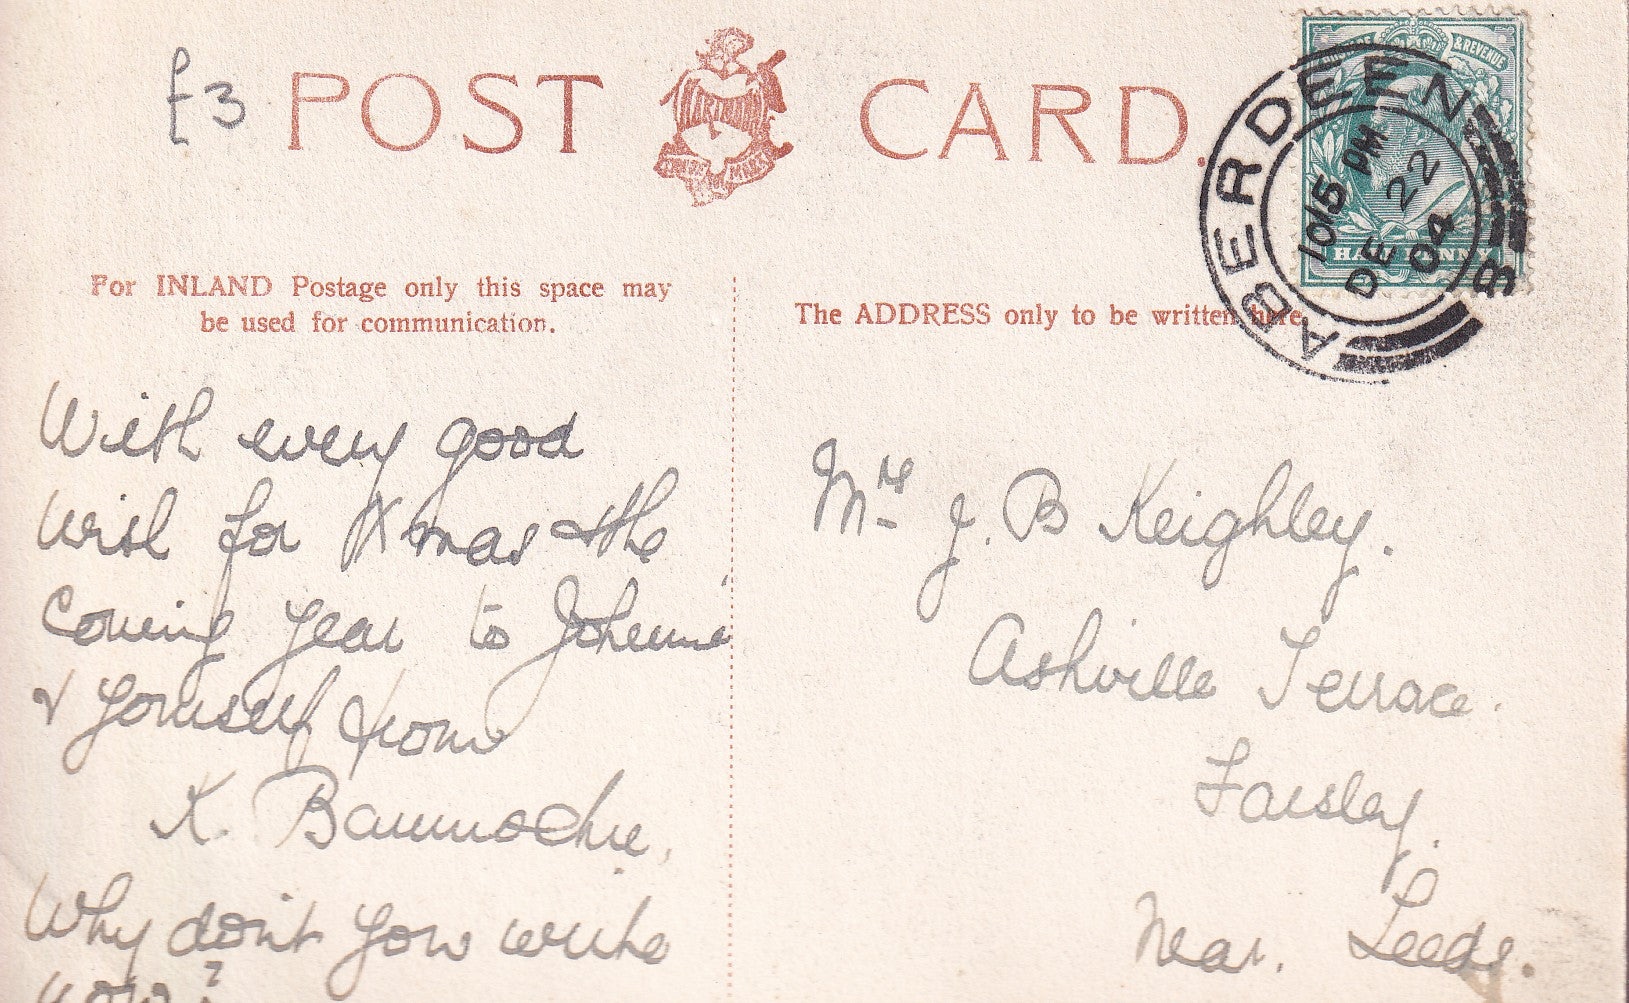 £3
POST CARD.
HARTMANN
& REVENUE
HALFPENNY
ABERDEEN
10/15 PM
DE 22
04
B
For INLAND Postage only this space may
be used for communication.
The ADDRESS only to be written here.
With every good
wish for Xmas & the
Coming year to Johnnie
& yourself from
K.
Why don't you write
now?
Mrs J. B Keighley.
Ashville Terrace.
Farsley.
Near. Leeds.